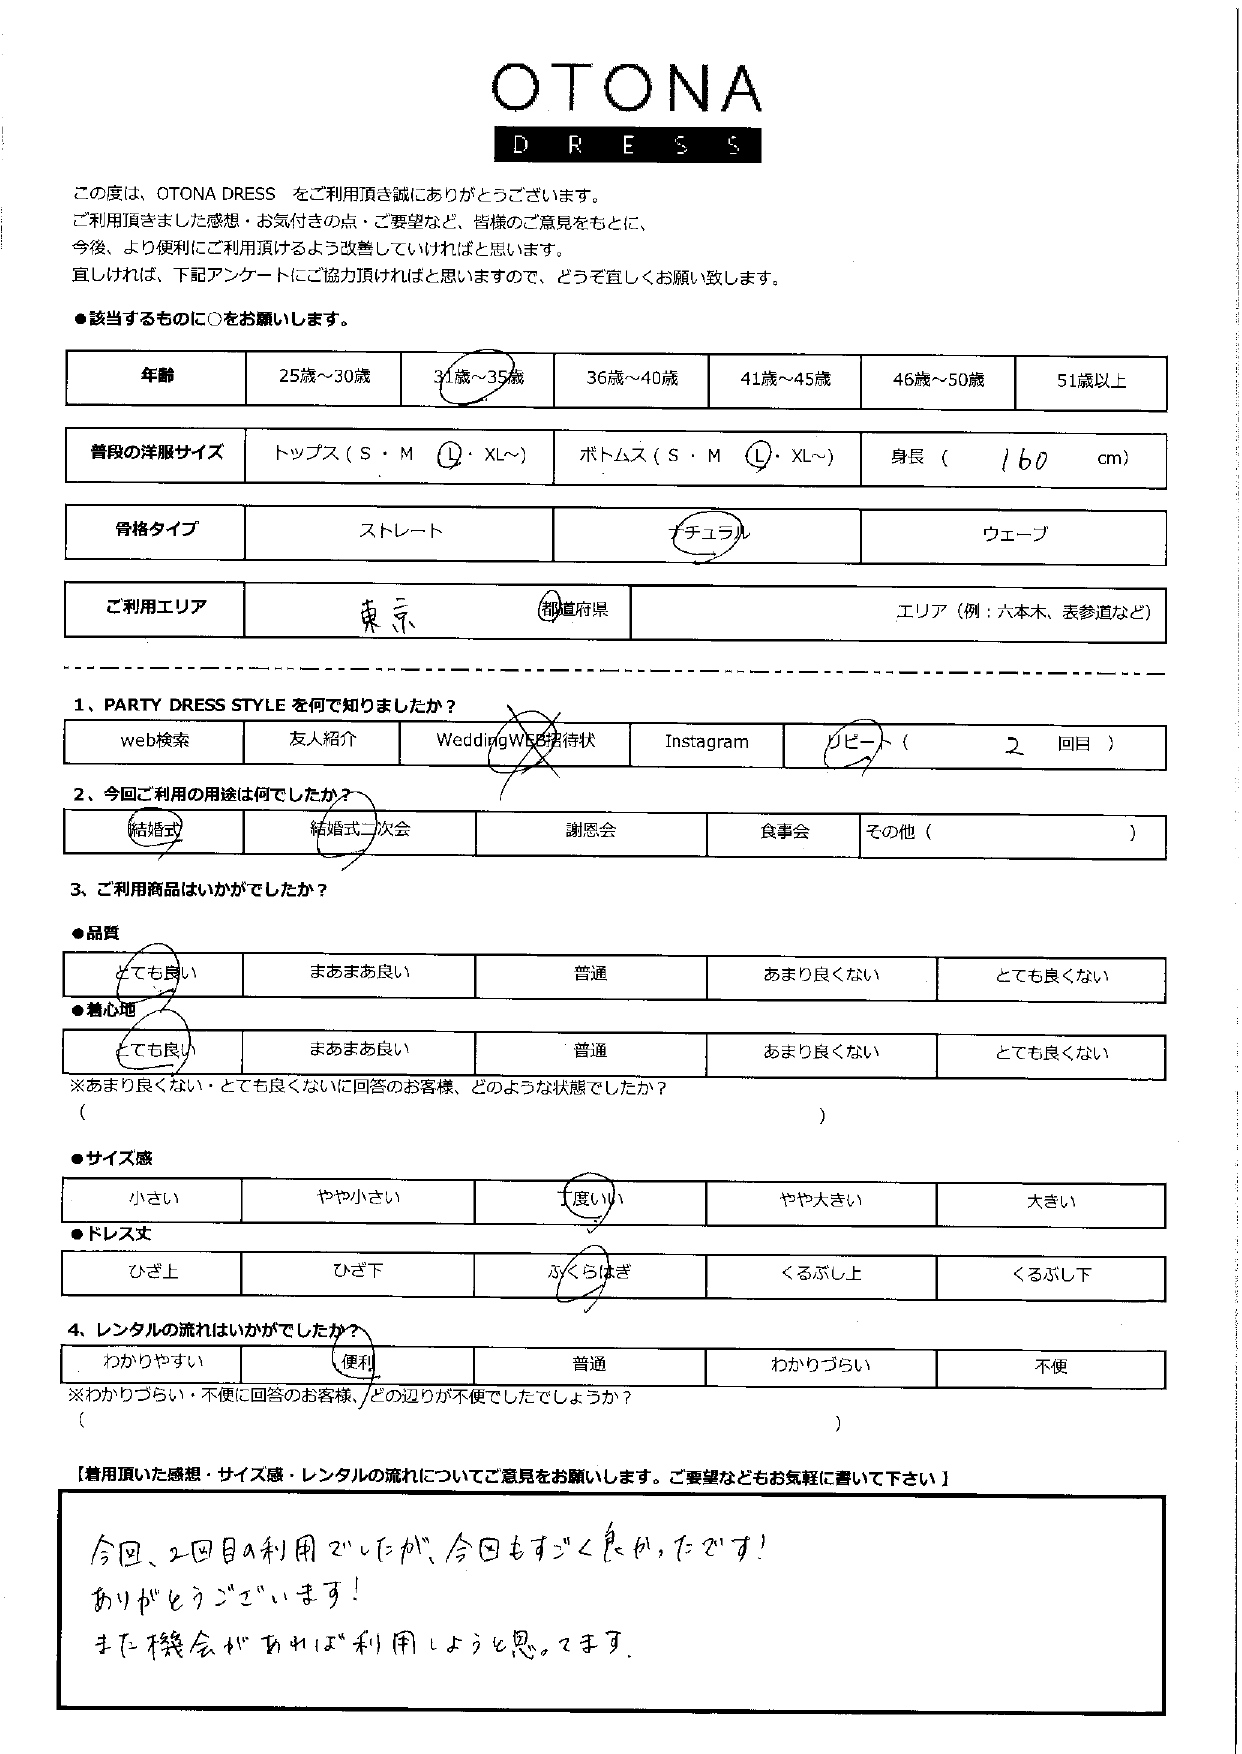 OTONA
DRESS
この度は、OTONA DRESS をご利用頂き誠にありがとうございます。
ご利用頂きました感想・お気付きの点・ご要望など、皆様のご意見をもとに、
今後、より便利にご利用頂けるよう改善していければと思います。
宜しければ、下記アンケートにご協力頂ければと思いますので、どうぞ宜しくお願い致します。
●該当するものに○をお願いします。
年齢 25歳～30歳 31歳～35歳 36歳～40歳 41歳～45歳 46歳～50歳 51歳以上
普段の洋服サイズ トップス ( S ・ M L ・ XL～) ボトムス ( S ・ M L ・ XL～) 身長 ( 160 cm)
骨格タイプ ストレート ナチュラル ウェーブ
ご利用エリア 東京 都道府県 エリア（例：六本木、表参道など）
1、PARTY DRESS STYLE を何で知りましたか？
web検索 友人紹介 WeddingWEB招待状 Instagram リピート ( 2 回目 )
2、今回ご利用の用途は何でしたか？
結婚式 結婚式二次会 謝恩会 食事会 その他 ( )
3、ご利用商品はいかがでしたか？
●品質
とても良い まあまあ良い 普通 あまり良くない とても良くない
●着心地
とても良い まあまあ良い 普通 あまり良くない とても良くない
※あまり良くない・とても良くないに回答のお客様、どのような状態でしたか？
( )
●サイズ感
小さい やや小さい 丁度いい やや大きい 大きい
●ドレス丈
ひざ上 ひざ下 ふくらはぎ くるぶし上 くるぶし下
4、レンタルの流れはいかがでしたか？
わかりやすい 便利 普通 わかりづらい 不便
※わかりづらい・不便に回答のお客様、どの辺りが不便でしたでしょうか？
( )
【着用頂いた感想・サイズ感・レンタルの流れについてご意見をお願いします。ご要望などもお気軽に書いて下さい】
今回、2回目の利用でしたが、今回もすごく良かったです！
ありがとうございます！
また機会があれば利用しようと思ってます.